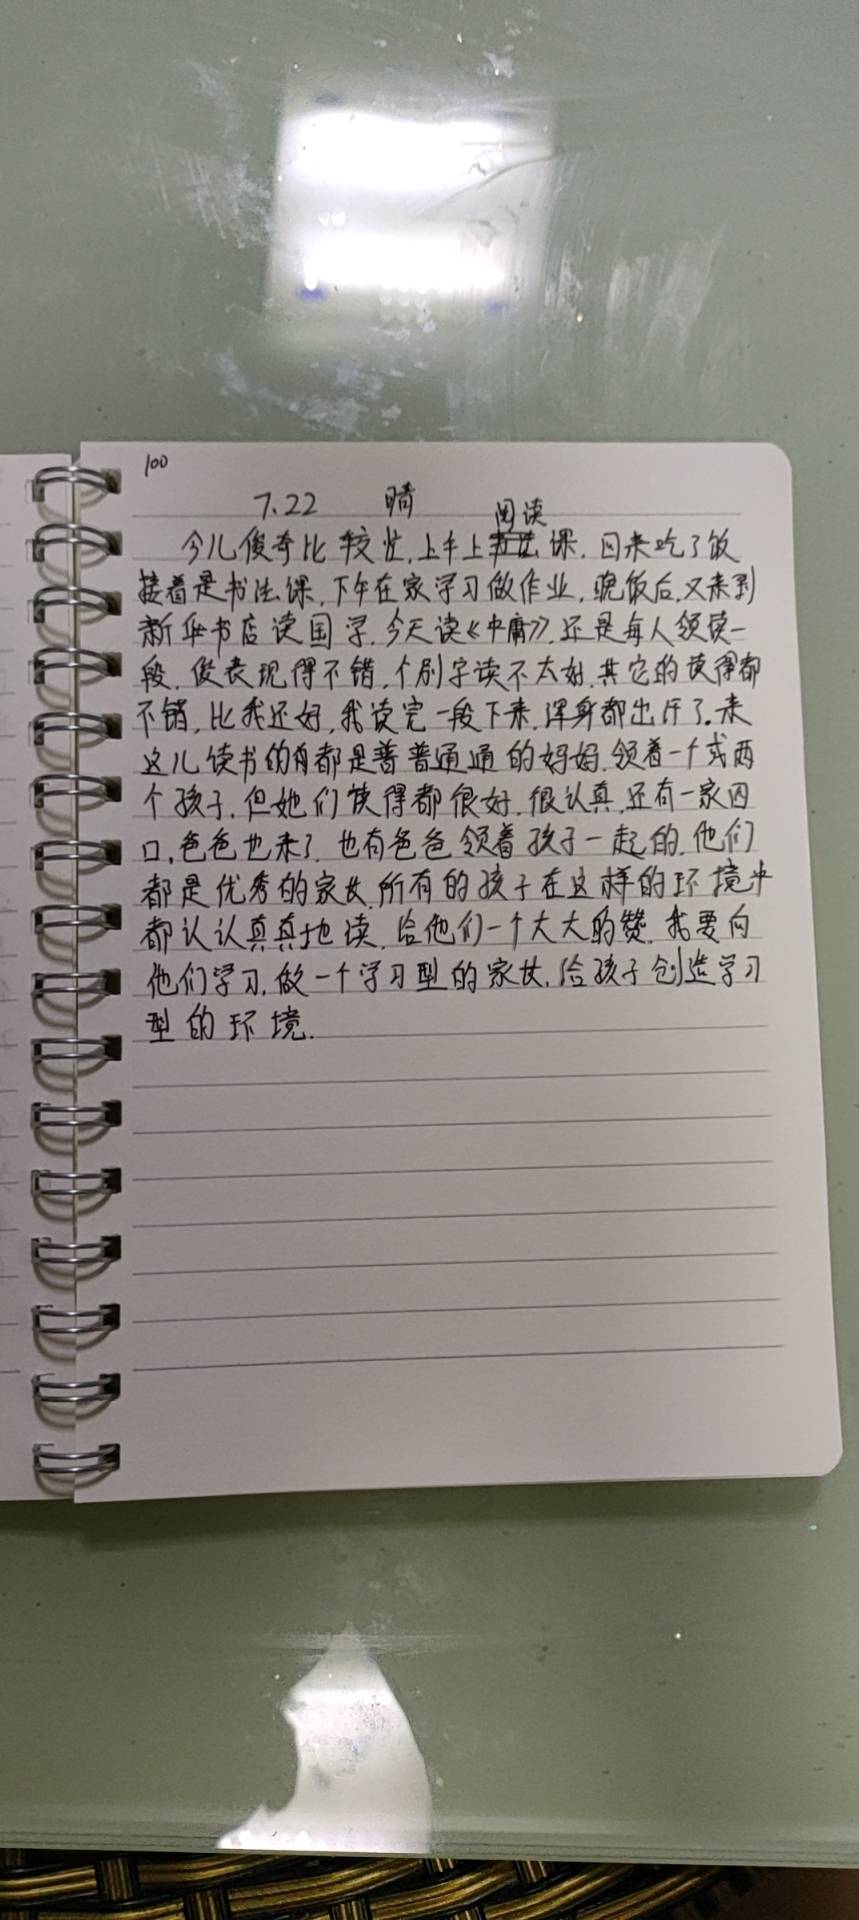 100
7.22 晴
阅读
今儿俊奇比较忙,上午上书法课.回来吃了饭
接着是书法课,下午在家学习做作业,晚饭后,又来到
新华书店读国学.今天读《中庸》.还是每人领读一
段.俊表现得不错,个别字读不太好.其它的读得都
不错,比我还好,我读完一段下来,浑身都出汗了.来
这儿读书的有都是普普通通的妈妈.领着一个或两
个孩子.但她们读得都很好.很认真.还有一家四
口,爸爸也来了.也有爸爸领着孩子一起的.他们
都是优秀的家长.所有的孩子在这样的环境中
都认认真真地读.给他们一个大大的赞.我要向
他们学习.做一个学习型的家长.给孩子创造学习
型的环境.